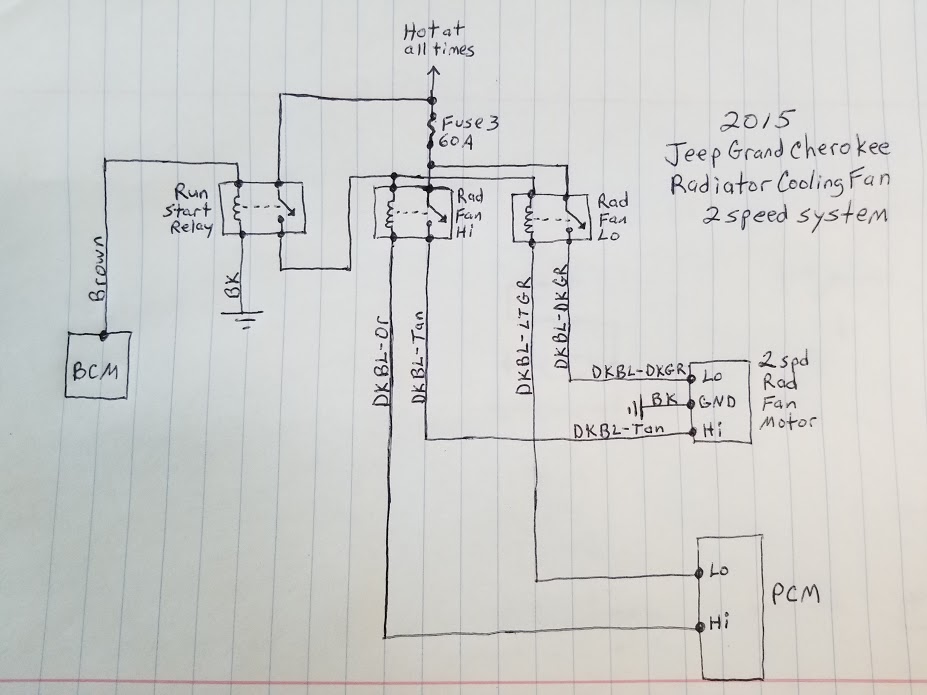 Hot at
all times
Fuse 3
60A
2015
Jeep Grand Cherokee
Radiator Cooling Fan
2 speed system
Run
Start
Relay
Rad
Fan
Hi
Rad
Fan
Lo
Brown
BK
BCM
DKBL-Or
DKBL-Tan
DKBL-LTGR
DKBL-DKGR
DKBL-DKGR
Lo
BK
GND
DKBL-Tan
Hi
2 spd
Rad
Fan
Motor
Lo
Hi
PCM